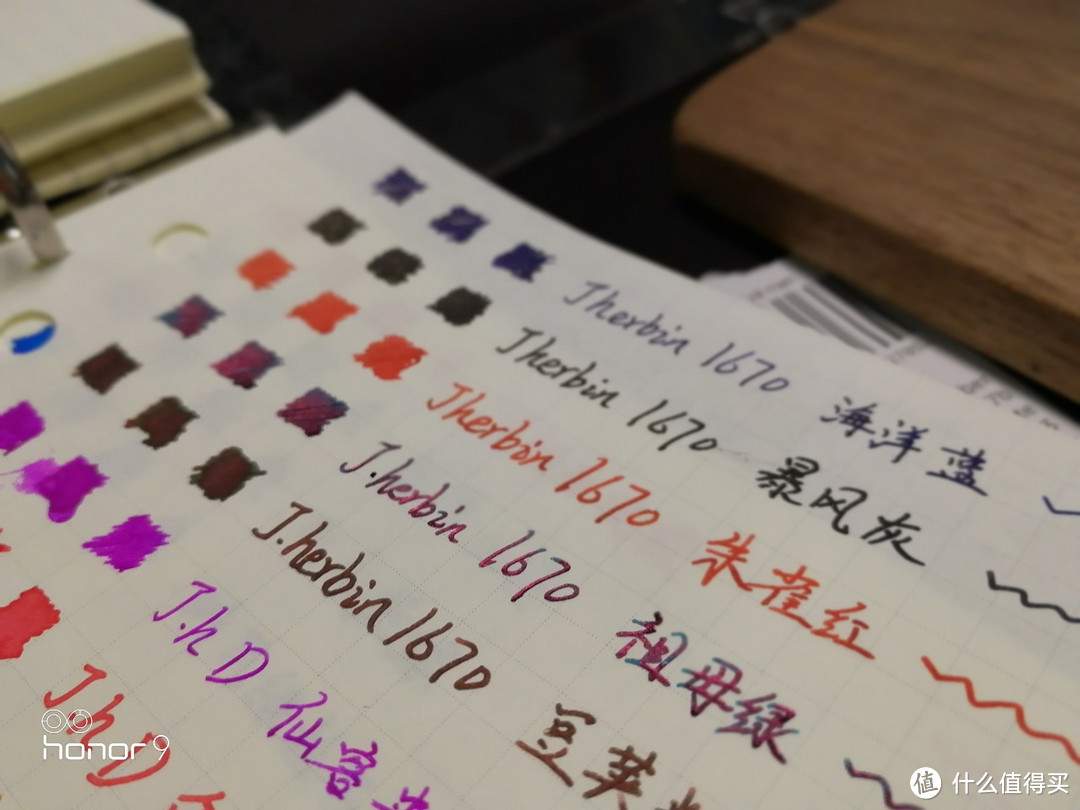 Jherbin 1670 海洋蓝
Jherbin 1670 暴风灰
Jherbin 1670 朱雀红
J.herbin 1670 祖母绿
J.herbin 1670 豆荚
J.h D 仙客
J.h D
honor 9
值 什么值得买